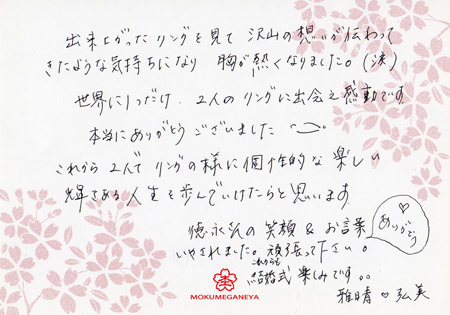 出来上がったリングを見て 沢山の想いが伝わって
きたような気持ちになり 胸が熱くなりました。(涙)
世界に1つだけ、2人のリングに出会え感動です
本当にありがとう ございました
これから 2人で リングの様に個性的な楽しい
輝きある 人生を歩んでいけたらと思います
徳永さんの 笑顔 & お言葉
いやされました。頑張って下さい。
これからも
結婚式 楽しみです。。
ありがとう
雅晴 ♡ 弘美
MOKUMEGANEYA